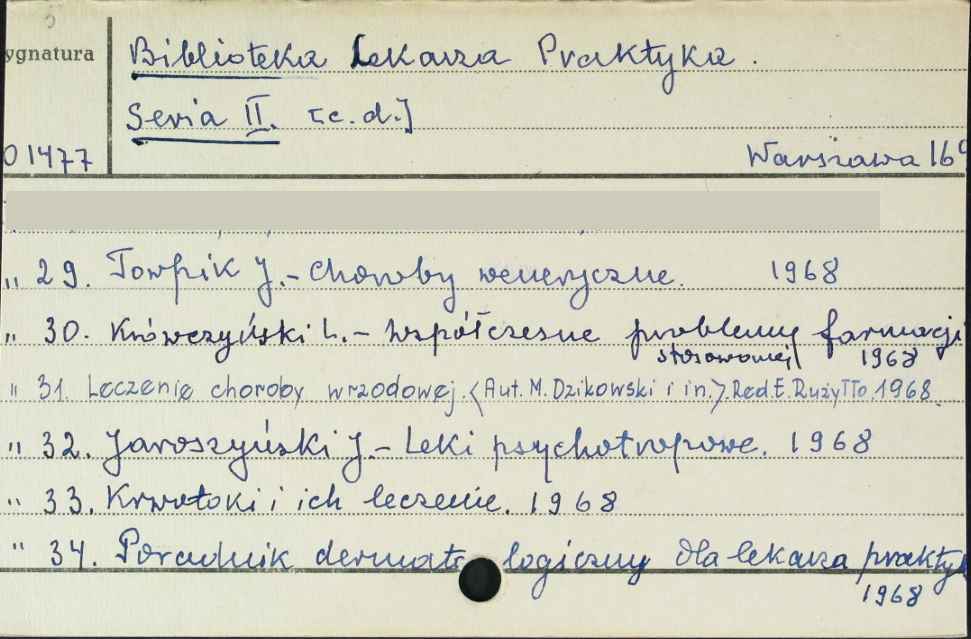 ygnatura
Biblioteka Lekarza Praktyka.
Seria II. [c.d.]
01477
Warszawa 16
" 29. Towpik J.- Choroby weneryczne. 1968
" 30. Krówczyński L.- Współczesne problemy farmacji
stosowanej 1968
" 31. Leczenie choroby wrzodowej. <Aut. M. Dzikowski i in.>. Red. E. Rużyłło. 1968.
" 32. Jaroszyński J.- Leki psychotropowe. 1968
" 33. Krwotoki i ich leczenie. 1968
" 34. Poradnik dermatologiczny dla lekarza prakty
1968